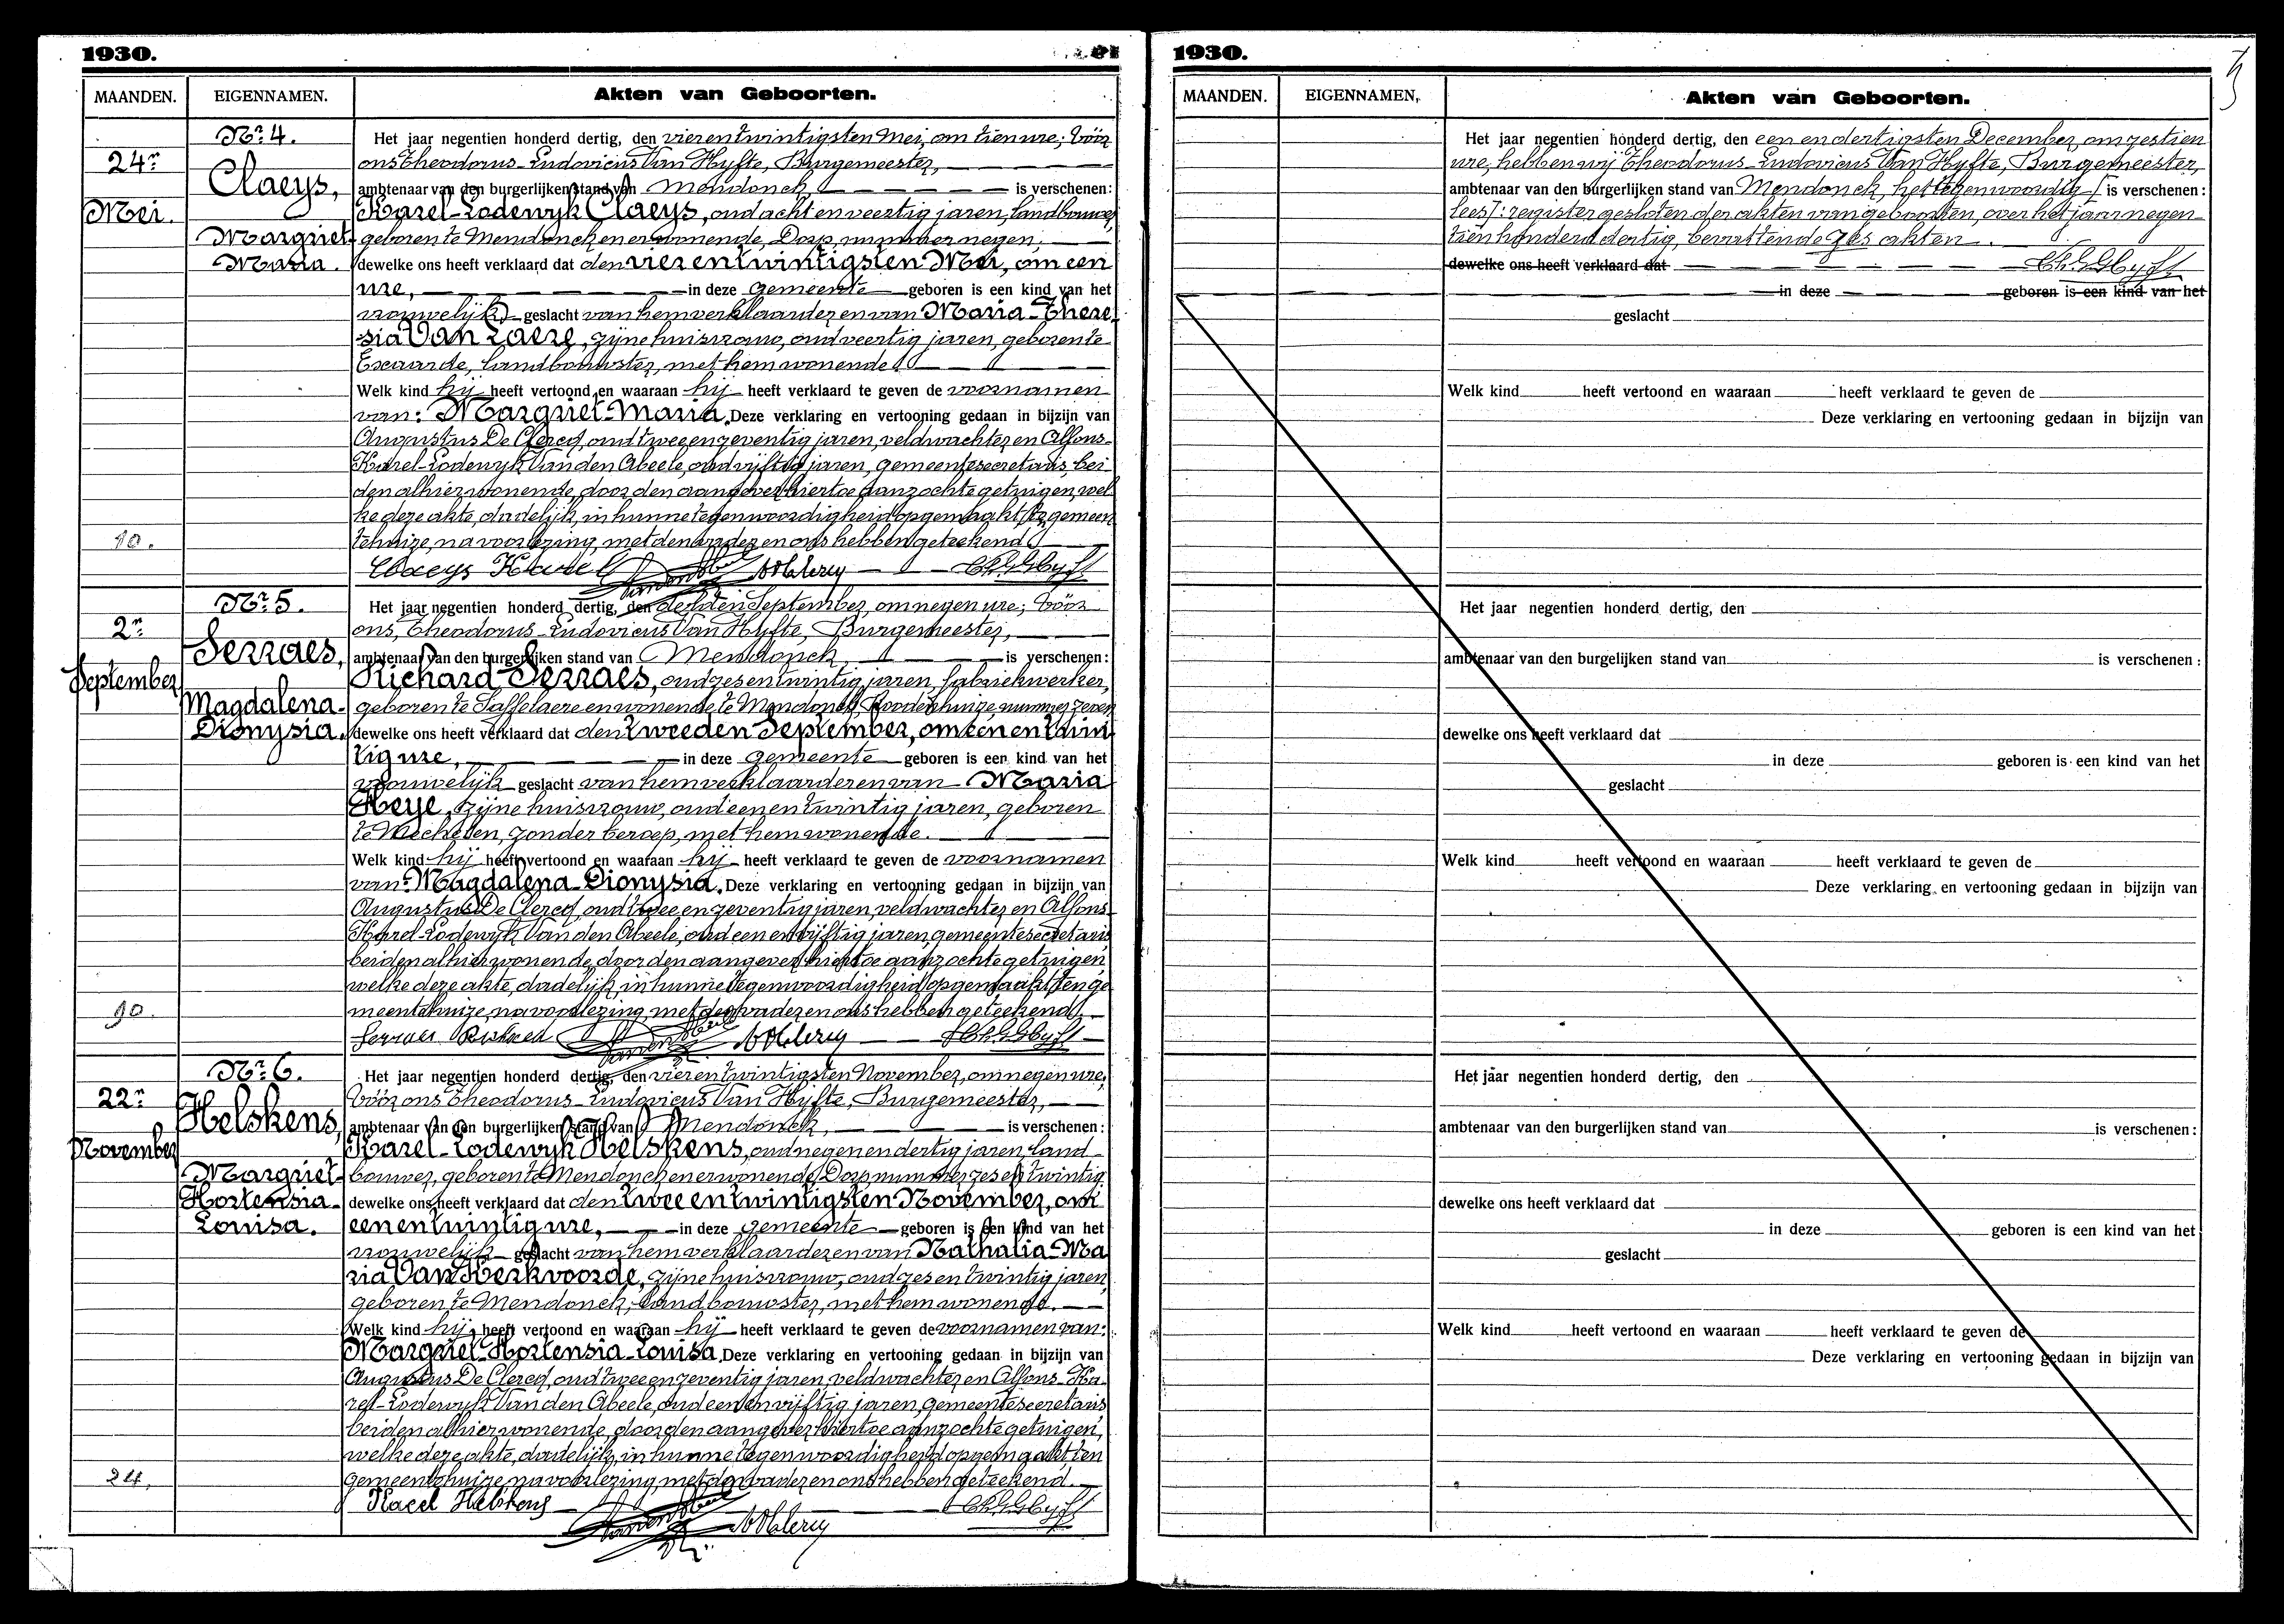 1930.
MAANDEN. EIGENNAMEN. Akten van Geboorten.
Nr. 4.
24n
Mei.
Claeys,
Margriet-
Maria.
10.
Het jaar negentien honderd dertig, den vierentwintigsten Mei, om tien ure; vóór
ons Theodorus-Ludovicus Van Hyfte, Burgemeester,
ambtenaar van den burgerlijken stand van Mendonck, is verschenen:
Karel-Lodewyk Claeys, oud acht en veertig jaren, landbouwer,
geboren te Mendonck en er wonende, Dorp, nummer negen,
dewelke ons heeft verklaard dat den vier en twintigsten Mei, om een
ure, in deze gemeente geboren is een kind van het
vrouwelijk geslacht van hem verklaarder en van Maria-There-
sia Van Laere, zijne huisvrouw, oud veertig jaren, geboren te
Exaarde, landbouwster, met hem wonende
Welk kind hij heeft vertoond en waaraan hij heeft verklaard te geven de voornamen
van: Margriet-Maria. Deze verklaring en vertooning gedaan in bijzijn van
Augustus De Clercq, oud twee en zeventig jaren, veldwachter en Alfons-
Karel-Lodewyk Van den Abeele, oud vijftig jaren, gemeentesecretaris, bei-
den alhier wonende, door den aangever hiertoe aanzochte getuigen, wel-
ke deze akte, dadelijk, in hunne tegenwoordigheid opgemaakt ten gemeen-
tehuize, na voorlezing, met den vader en ons hebben geteekend
Claeys Karel
Nr. 5.
2n
September
Serraes,
Magdalena-
Dionysia.
10.
Het jaar negentien honderd dertig, den derden September, om negen ure; vóór
ons, Theodorus-Ludovicus Van Hyfte, Burgemeester,
ambtenaar van den burgerlijken stand van Mendonck, is verschenen:
Richard Serraes, oud zes en twintig jaren, fabriekwerker,
geboren te Saffelaere en wonende te Mendonck, Roodenhuize, nummer zeven
dewelke ons heeft verklaard dat den tweeden September, om een en twin-
tig ure, in deze gemeente geboren is een kind van het
vrouwelijk geslacht van hem verklaarder en van Maria
Heye, zijne huisvrouw, oud een en twintig jaren, geboren
te Mechelen, zonder beroep, met hem wonende.
Welk kind hij heeft vertoond en waaraan hij heeft verklaard te geven de voornamen
van: Magdalena-Dionysia. Deze verklaring en vertooning gedaan in bijzijn van
Augustus De Clercq, oud twee en zeventig jaren, veldwachter en Alfons-
Karel-Lodewyk Van den Abeele, oud een en vijftig jaren, gemeentesecretaris
beiden alhier wonende, door den aangever hiertoe aanzochte getuigen,
welke deze akte, dadelijk, in hunne tegenwoordigheid opgemaakt ten ge-
meentehuize, na voorlezing, met den vader en ons hebben geteekend.
Serraes Richard
Nr. 6.
22n
November
Helskens,
Margriet-
Hortensia-
Louisa.
24.
Het jaar negentien honderd dertig, den vier en twintigsten November, om negen ure,
vóór ons Theodorus-Ludovicus Van Hyfte, Burgemeester,
ambtenaar van den burgerlijken stand van Mendonck, is verschenen:
Karel-Lodewyk Helskens, oud negen en dertig jaren, land-
bouwer, geboren te Mendonck en er wonende, Dorp nummer zes en twintig
dewelke ons heeft verklaard dat den twee en twintigsten November, om
een en twintig ure, in deze gemeente geboren is een kind van het
vrouwelijk geslacht van hem verklaarder en van Nathalia-Ma-
ria Van Kerkvoorde, zijne huisvrouw, oud zes en twintig jaren,
geboren te Mendonck, landbouwster, met hem wonende.
Welk kind hij heeft vertoond en waaraan hij heeft verklaard te geven de voornamen van:
Margriet-Hortensia-Louisa. Deze verklaring en vertooning gedaan in bijzijn van
Augustus De Clercq, oud twee en zeventig jaren, veldwachter en Alfons-Ka-
rel-Lodewyk Van den Abeele, oud een en vijftig jaren, gemeentesecretaris
beiden alhier wonende, door den aangever hiertoe aanzochte getuigen,
welke deze akte, dadelijk, in hunne tegenwoordigheid opgemaakt ten
gemeentehuize, na voorlezing, met den vader en ons hebben geteekend.
Karel Helskens
1930.
MAANDEN. EIGENNAMEN. Akten van Geboorten.
Het jaar negentien honderd dertig, den een en dertigsten December, om zestien
ure, hebben wij Theodorus-Ludovicus Van Hyfte, Burgemeester,
ambtenaar van den burgerlijken stand van Mendonck, het tegenwoordig [is verschenen:
lees]: register gesloten der akten van geboorten, over het jaar negen-
tien honderd dertig, bevattende zes akten.
dewelke ons heeft verklaard dat
in deze geboren is een kind van het
geslacht
Welk kind heeft vertoond en waaraan heeft verklaard te geven de
Deze verklaring en vertooning gedaan in bijzijn van
Het jaar negentien honderd dertig, den
ambtenaar van den burgelijken stand van is verschenen:
dewelke ons heeft verklaard dat
in deze geboren is een kind van het
geslacht
Welk kind heeft vertoond en waaraan heeft verklaard te geven de
Deze verklaring en vertooning gedaan in bijzijn van
Het jaar negentien honderd dertig, den
ambtenaar van den burgerlijken stand van is verschenen:
dewelke ons heeft verklaard dat
in deze geboren is een kind van het
geslacht
Welk kind heeft vertoond en waaraan heeft verklaard te geven de
Deze verklaring en vertooning gedaan in bijzijn van